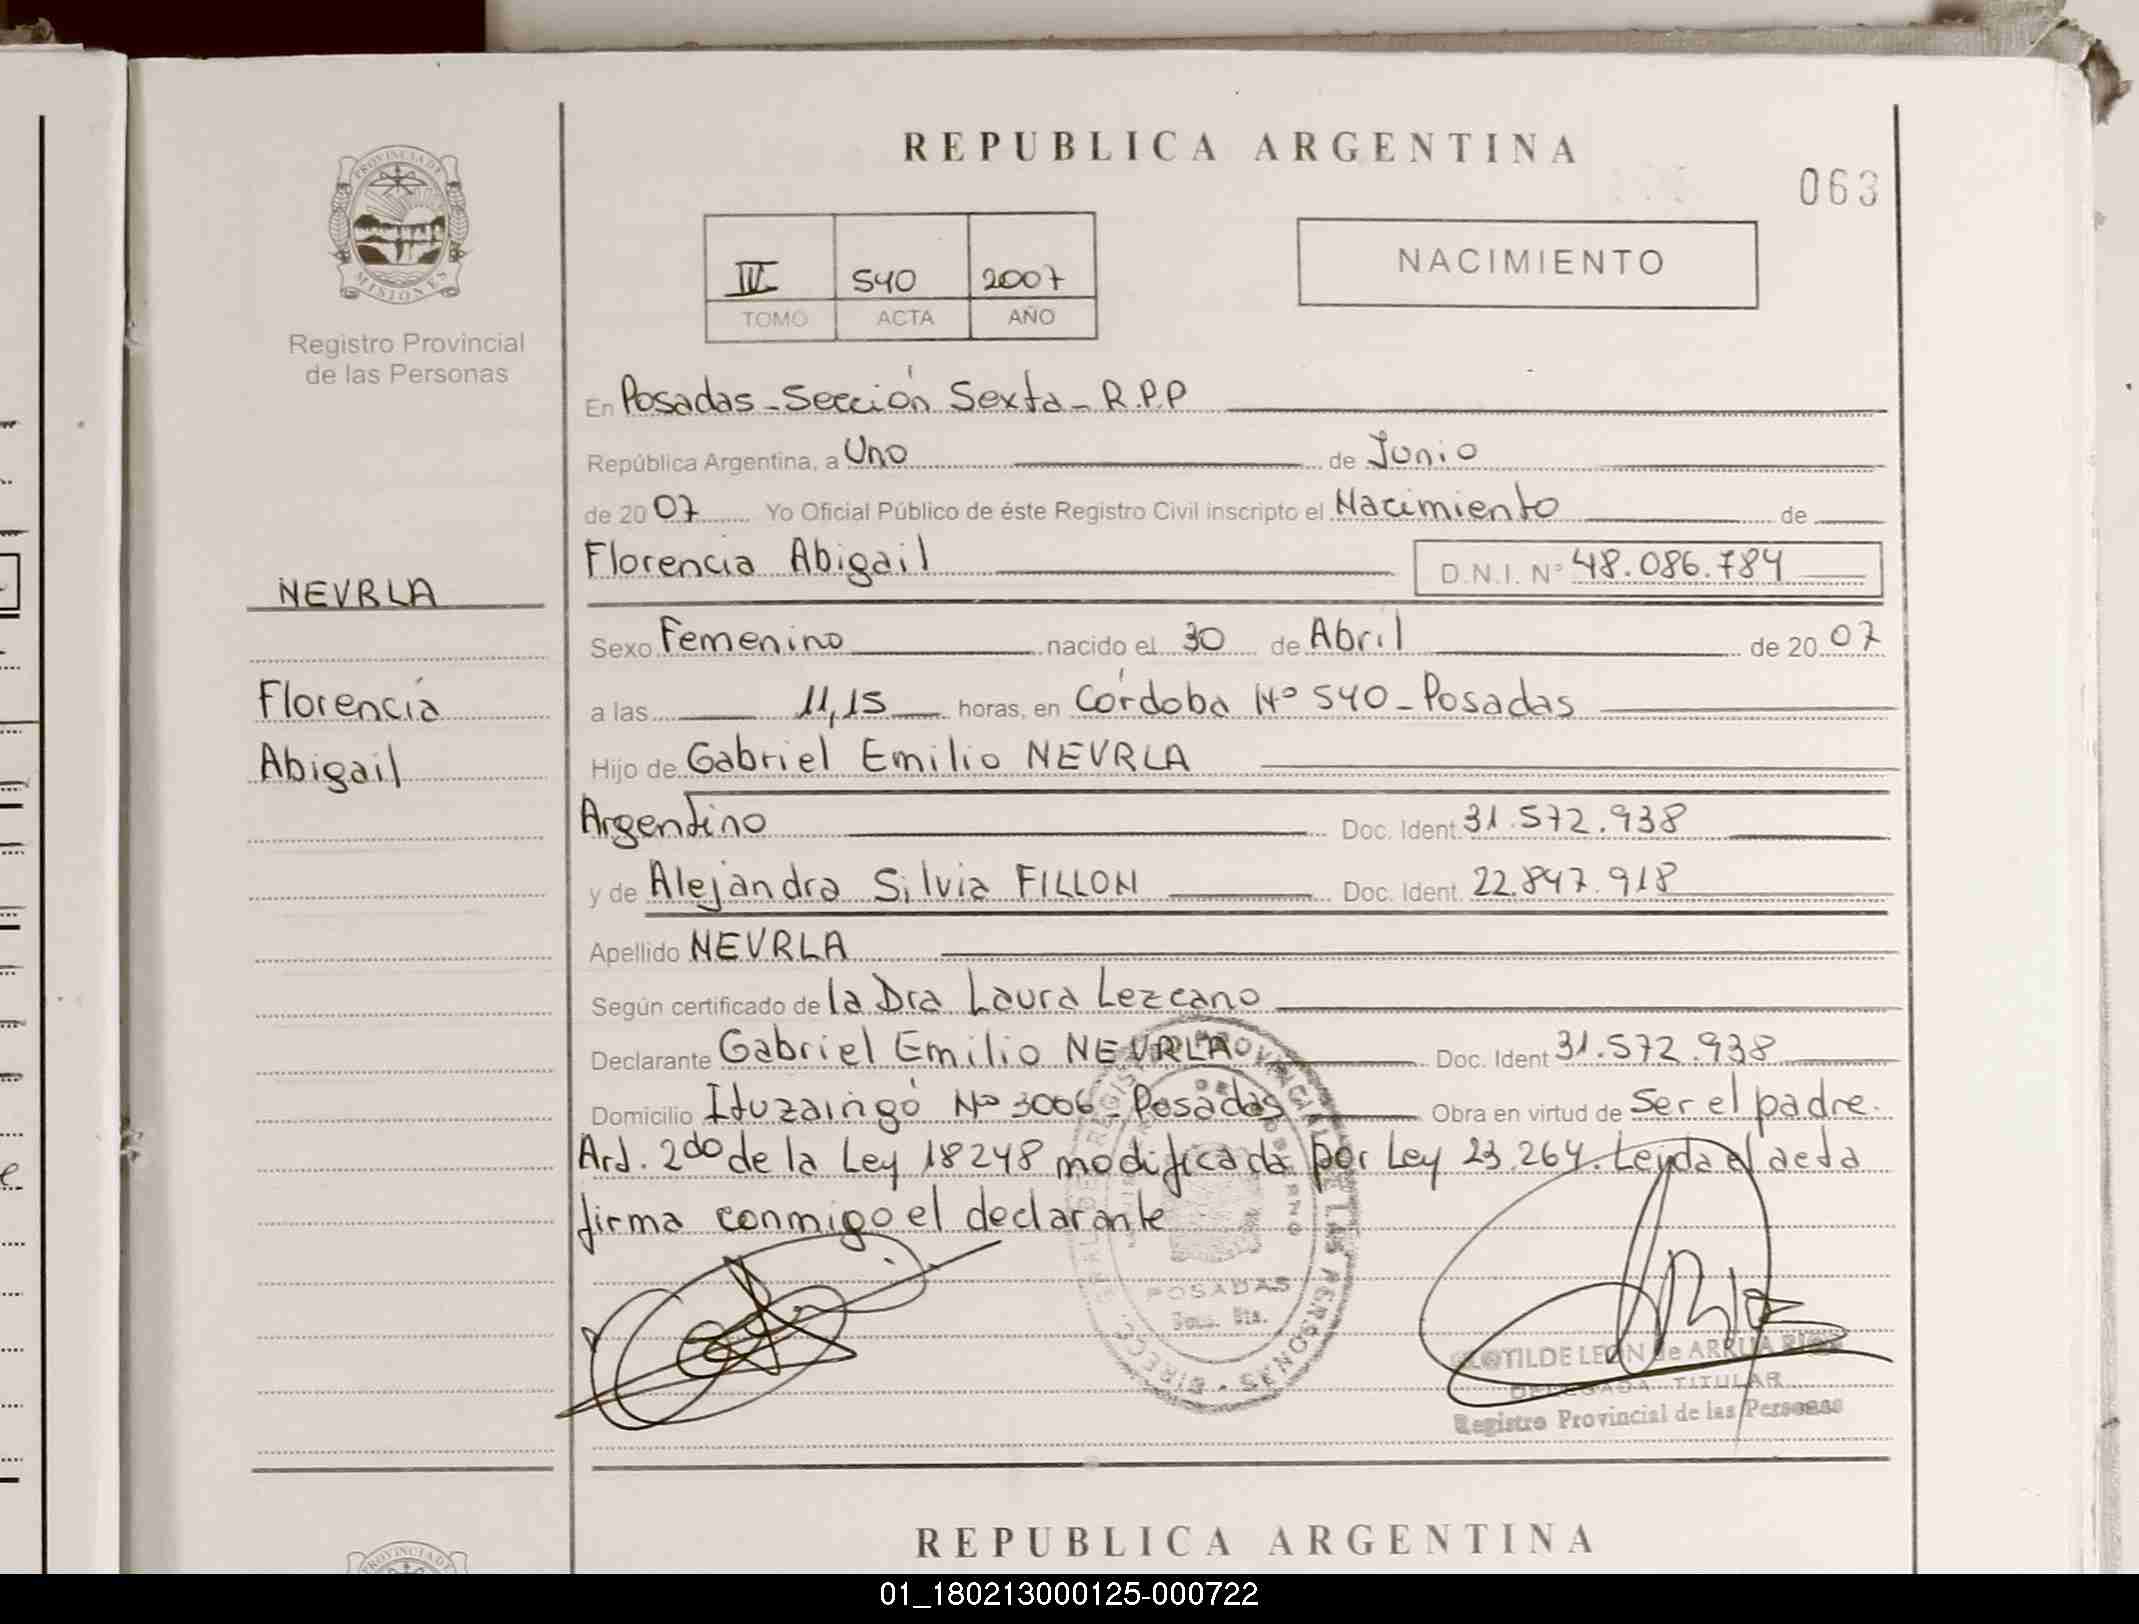 REPUBLICA ARGENTINA
063
PROVINCIA DE
MISIONES
Registro Provincial
de las Personas
IV 540 2007
TOMO ACTA AÑO
NACIMIENTO
En Posadas - Sección Sexta - R.P.P
República Argentina, a Uno de Junio
de 2007 Yo Oficial Público de éste Registro Civil inscripto el Nacimiento de
Florencia Abigail D.N.I. Nº 48.086.784
NEVRLA
Florencia
Abigail
Sexo Femenino nacido el 30 de Abril de 2007
a las 11,15 horas, en Córdoba Nº 540 - Posadas
Hijo de Gabriel Emilio NEVRLA
Argentino Doc. Ident. 31.572.938
y de Alejandra Silvia FILLON Doc. Ident. 22.847.918
Apellido NEVRLA
Según certificado de la Dra Laura Lezcano
Declarante Gabriel Emilio NEVRLA Doc. Ident 31.572.938
Domicilio Ituzaingó Nº 3006 - Posadas Obra en virtud de Ser el padre.
Art. 2do de la Ley 18248 modificada por Ley 23.264. Leyda el acta
firma conmigo el declarante
POSADAS
CLOTILDE LEON de ARRUA RIOS
DELEGADA TITULAR
Registro Provincial de las Personas
REPUBLICA ARGENTINA
PROVINCIA DE
01_180213000125-000722